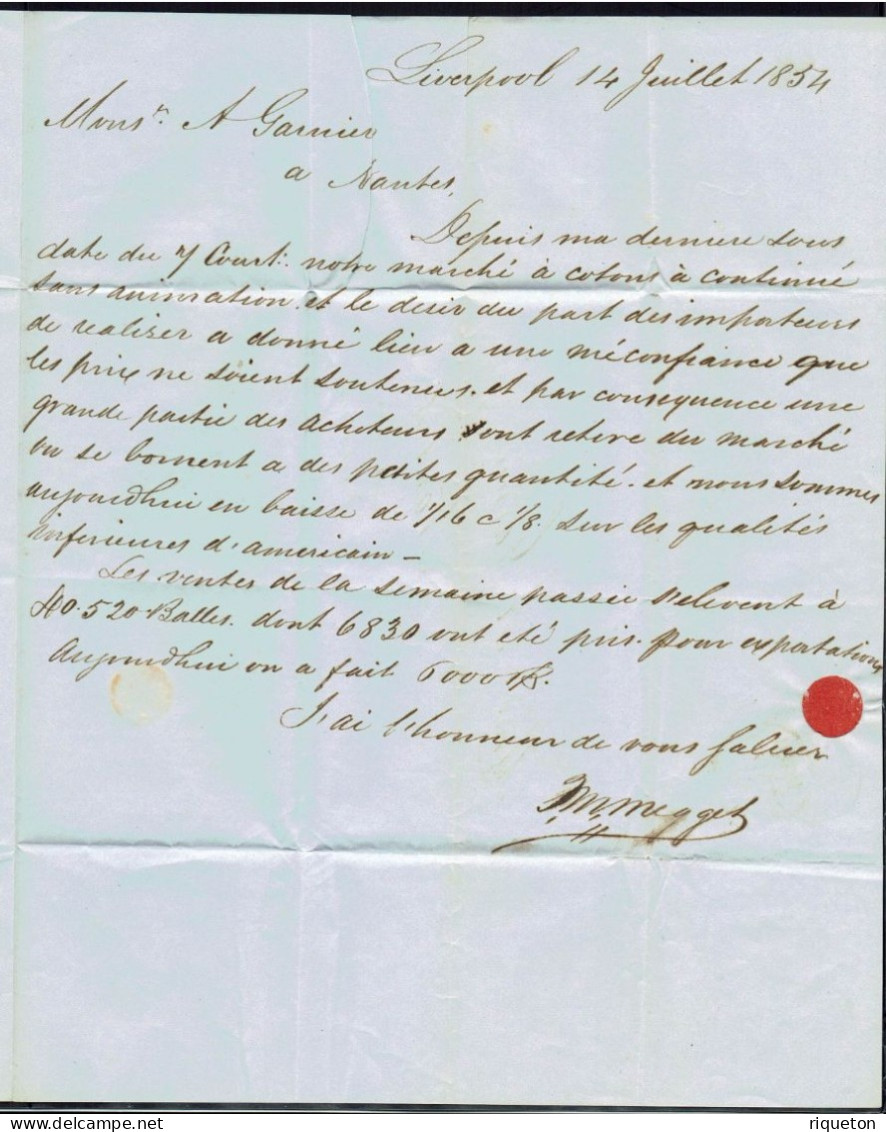 Liverpool 14 Juillet 1854
Monsr. A Garnier
a Nantes,
Depuis ma derniere sous
date du 7 Court: notre marché à cotons à continué
sans animation. et le desir du part des importeurs
de realiser a donné lieu a une méconfiance que
les prix ne soient soutenus. et par consequence une
grande partie des acheteurs sont retire du marché
ou se bornent a des petites quantité. et nous sommes
aujourdhui en baisse de 1/16 c 1/8. sur les qualités
inferieures d'americain —
Les ventes de la semaine passée s'elevent à
40.520 Balles. dont 6830 ont eté pris. pour exportation
Aujourdhui on a fait 6000 B.
J'ai l'honneur de vous saluer
Megget
www.delcampe.net
riqueton